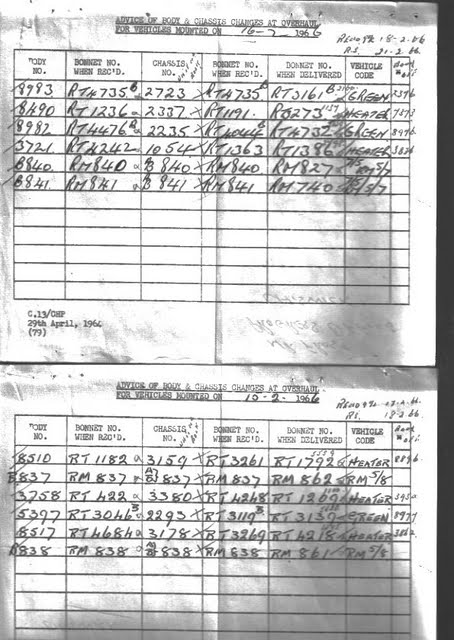 ADVICE OF BODY & CHASSIS CHANGES AT OVERHAUL
FOR VEHICLES MOUNTED ON 16-2 1966
18-2-66
21-2-66
BODY NO. BONNET NO. WHEN REC'D. CHASSIS NO. BONNET NO. WHEN REC'D. BONNET NO. WHEN DELIVERED VEHICLE CODE
8783 RT4735 2723 RT4735 RT3161 GREEN 2376
8490 RT1236 2337 RT1191 HEATER 7573
8982 RT4476 2235 GREEN 8476
3721 RT4242 1054 RT1363 HEATER
B840 RM840 B840 RM840 RM827 RM5/7
B841 RM841 B841 RM841 RM740
C.13/CHP
29th April, 1964
(79)
ADVICE OF BODY & CHASSIS CHANGES AT OVERHAUL
FOR VEHICLES MOUNTED ON 15-2- 1966
18-2-66
BODY NO. BONNET NO. WHEN REC'D. CHASSIS NO. BONNET NO. WHEN REC'D. BONNET NO. WHEN DELIVERED VEHICLE CODE
8510 RT1182 3159 RT3261 RT1792 HEATER 8896
B837 RM837 837 RM837 RM862 RM5/8
3758 RT422 3380 RT4248 RT1209 HEATER
5397 RT3046 2293 RT3119 RT3139 GREEN
8517 RT4684 3178 RT3269 RT4218 HEATER
B838 RM838 838 RM838 RM861 RM5/8